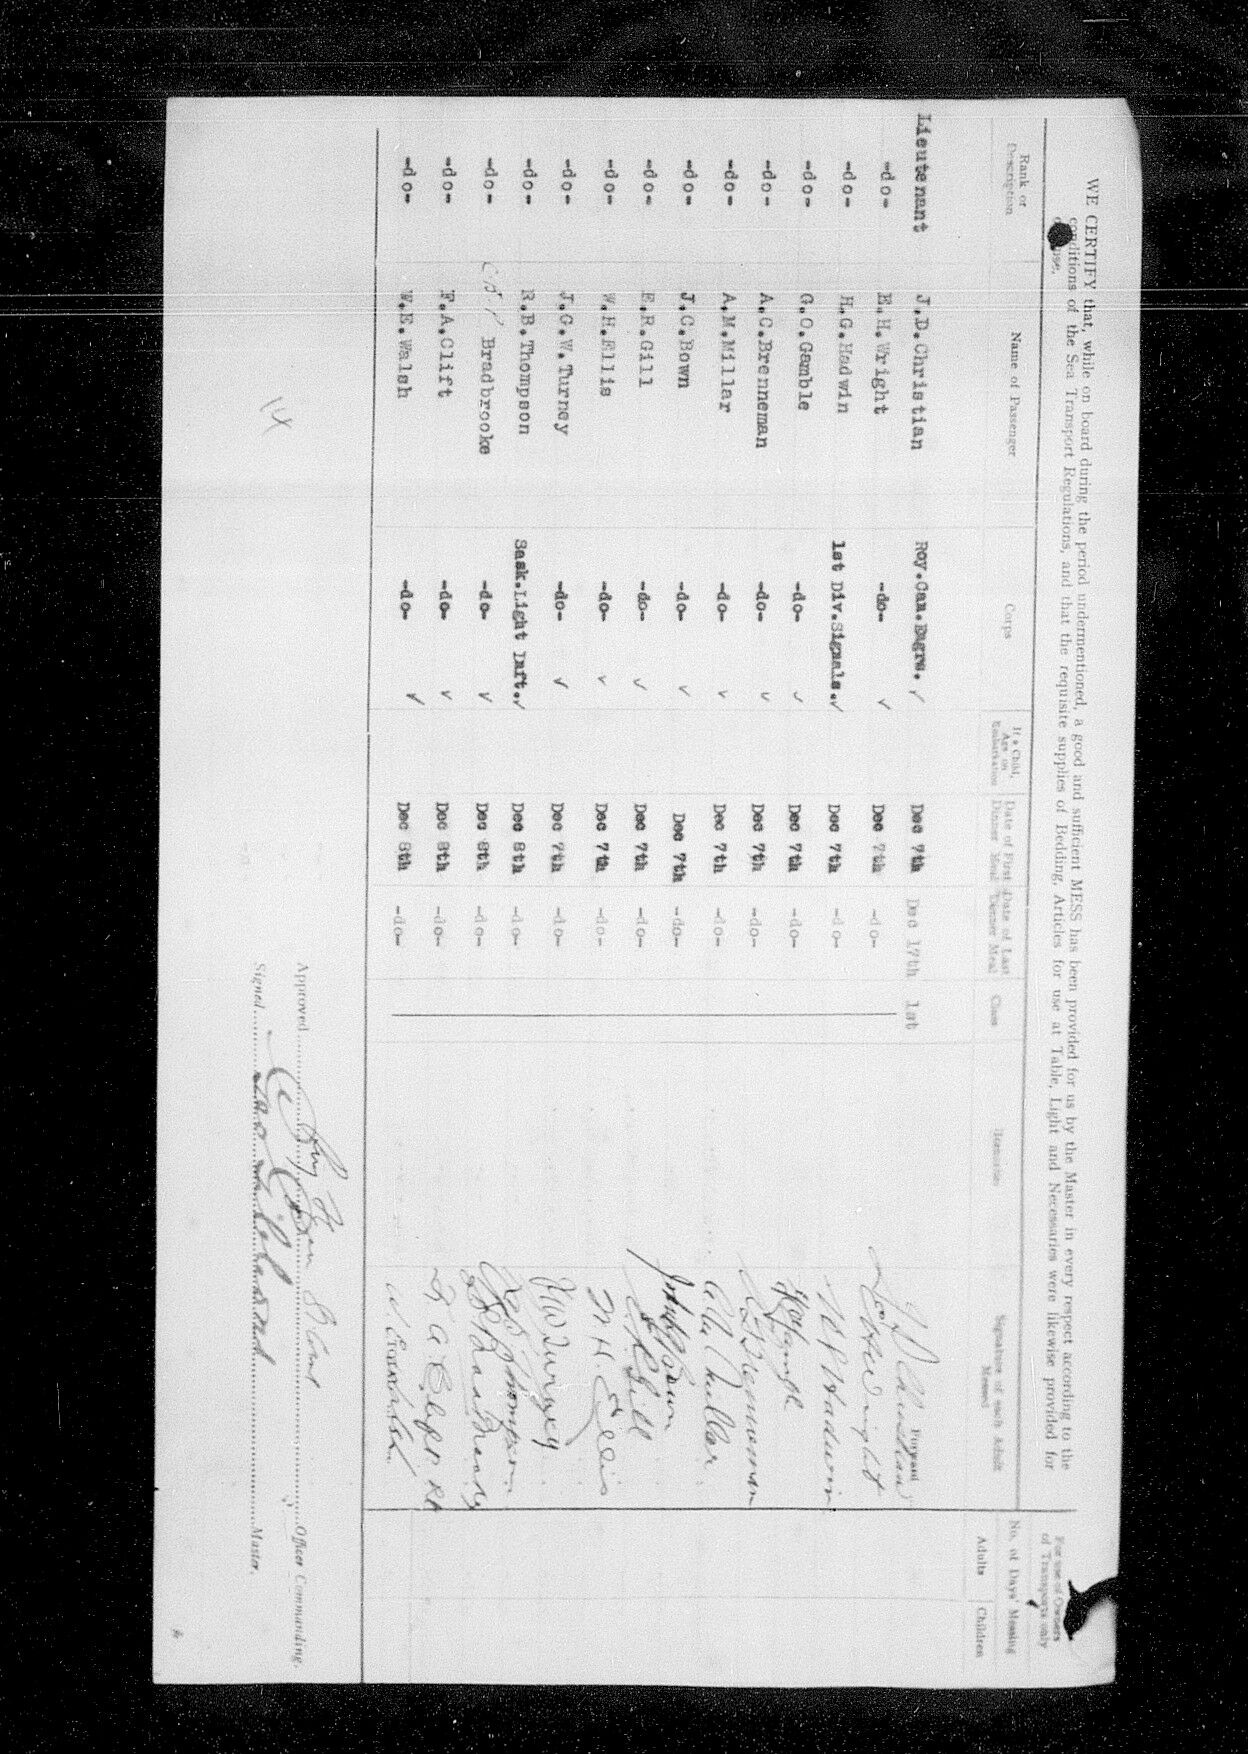 WE CERTIFY that, while on board during the period undermentioned, a good and sufficient MESS has been provided for us by the Master in every respect according to the
conditions of the Sea Transport Regulations, and that the requisite supplies of Bedding, Articles for use at Table, Light and Necessaries were likewise provided for
our use.
For use of Owners of Transports only
Rank or Description Name of Passenger Corps If a Child, Age on Embarkation Date of First Dinner Meal Date of Last Dinner Meal Class Remarks Signature of each Adult Messed No. of Days' Messing Adults Children
Lieutenant J.D.Christian Roy.Can.Engrs. ✓ Dec 7th Dec 17th 1st
-do- E.H.Wright -do- ✓ Dec 7th -do-
-do- H.G.Hadwin 1st Div.Signals. ✓ Dec 7th -do- Hadwin
-do- G.O.Gamble -do- ✓ Dec 7th -do-
-do- A.C.Brenneman -do- ✓ Dec 7th -do- Brenneman
-do- A.M.Millar -do- ✓ Dec 7th -do- Millar
-do- J.C.Bown -do- ✓ Dec 7th -do- Bown
-do- E.R.Gill -do- ✓ Dec 7th -do- E R Gill
-do- W.H.Ellis -do- ✓ Dec 7th -do- W.H. Ellis
-do- J.G.W.Turney -do- ✓ Dec 7th -do- Turney
-do- R.B.Thompson Sask.Light Inft. ✓ Dec 8th -do- Thompson
-do- Bradbrooke -do- ✓ Dec 8th -do- Bradbrooke
-do- F.A.Clift -do- ✓ Dec 8th -do- F. A. Clift
-do- W.E.Walsh -do- ✓ Dec 8th -do- W E Walsh
Approved Officer Commanding.
Signed Master.
14